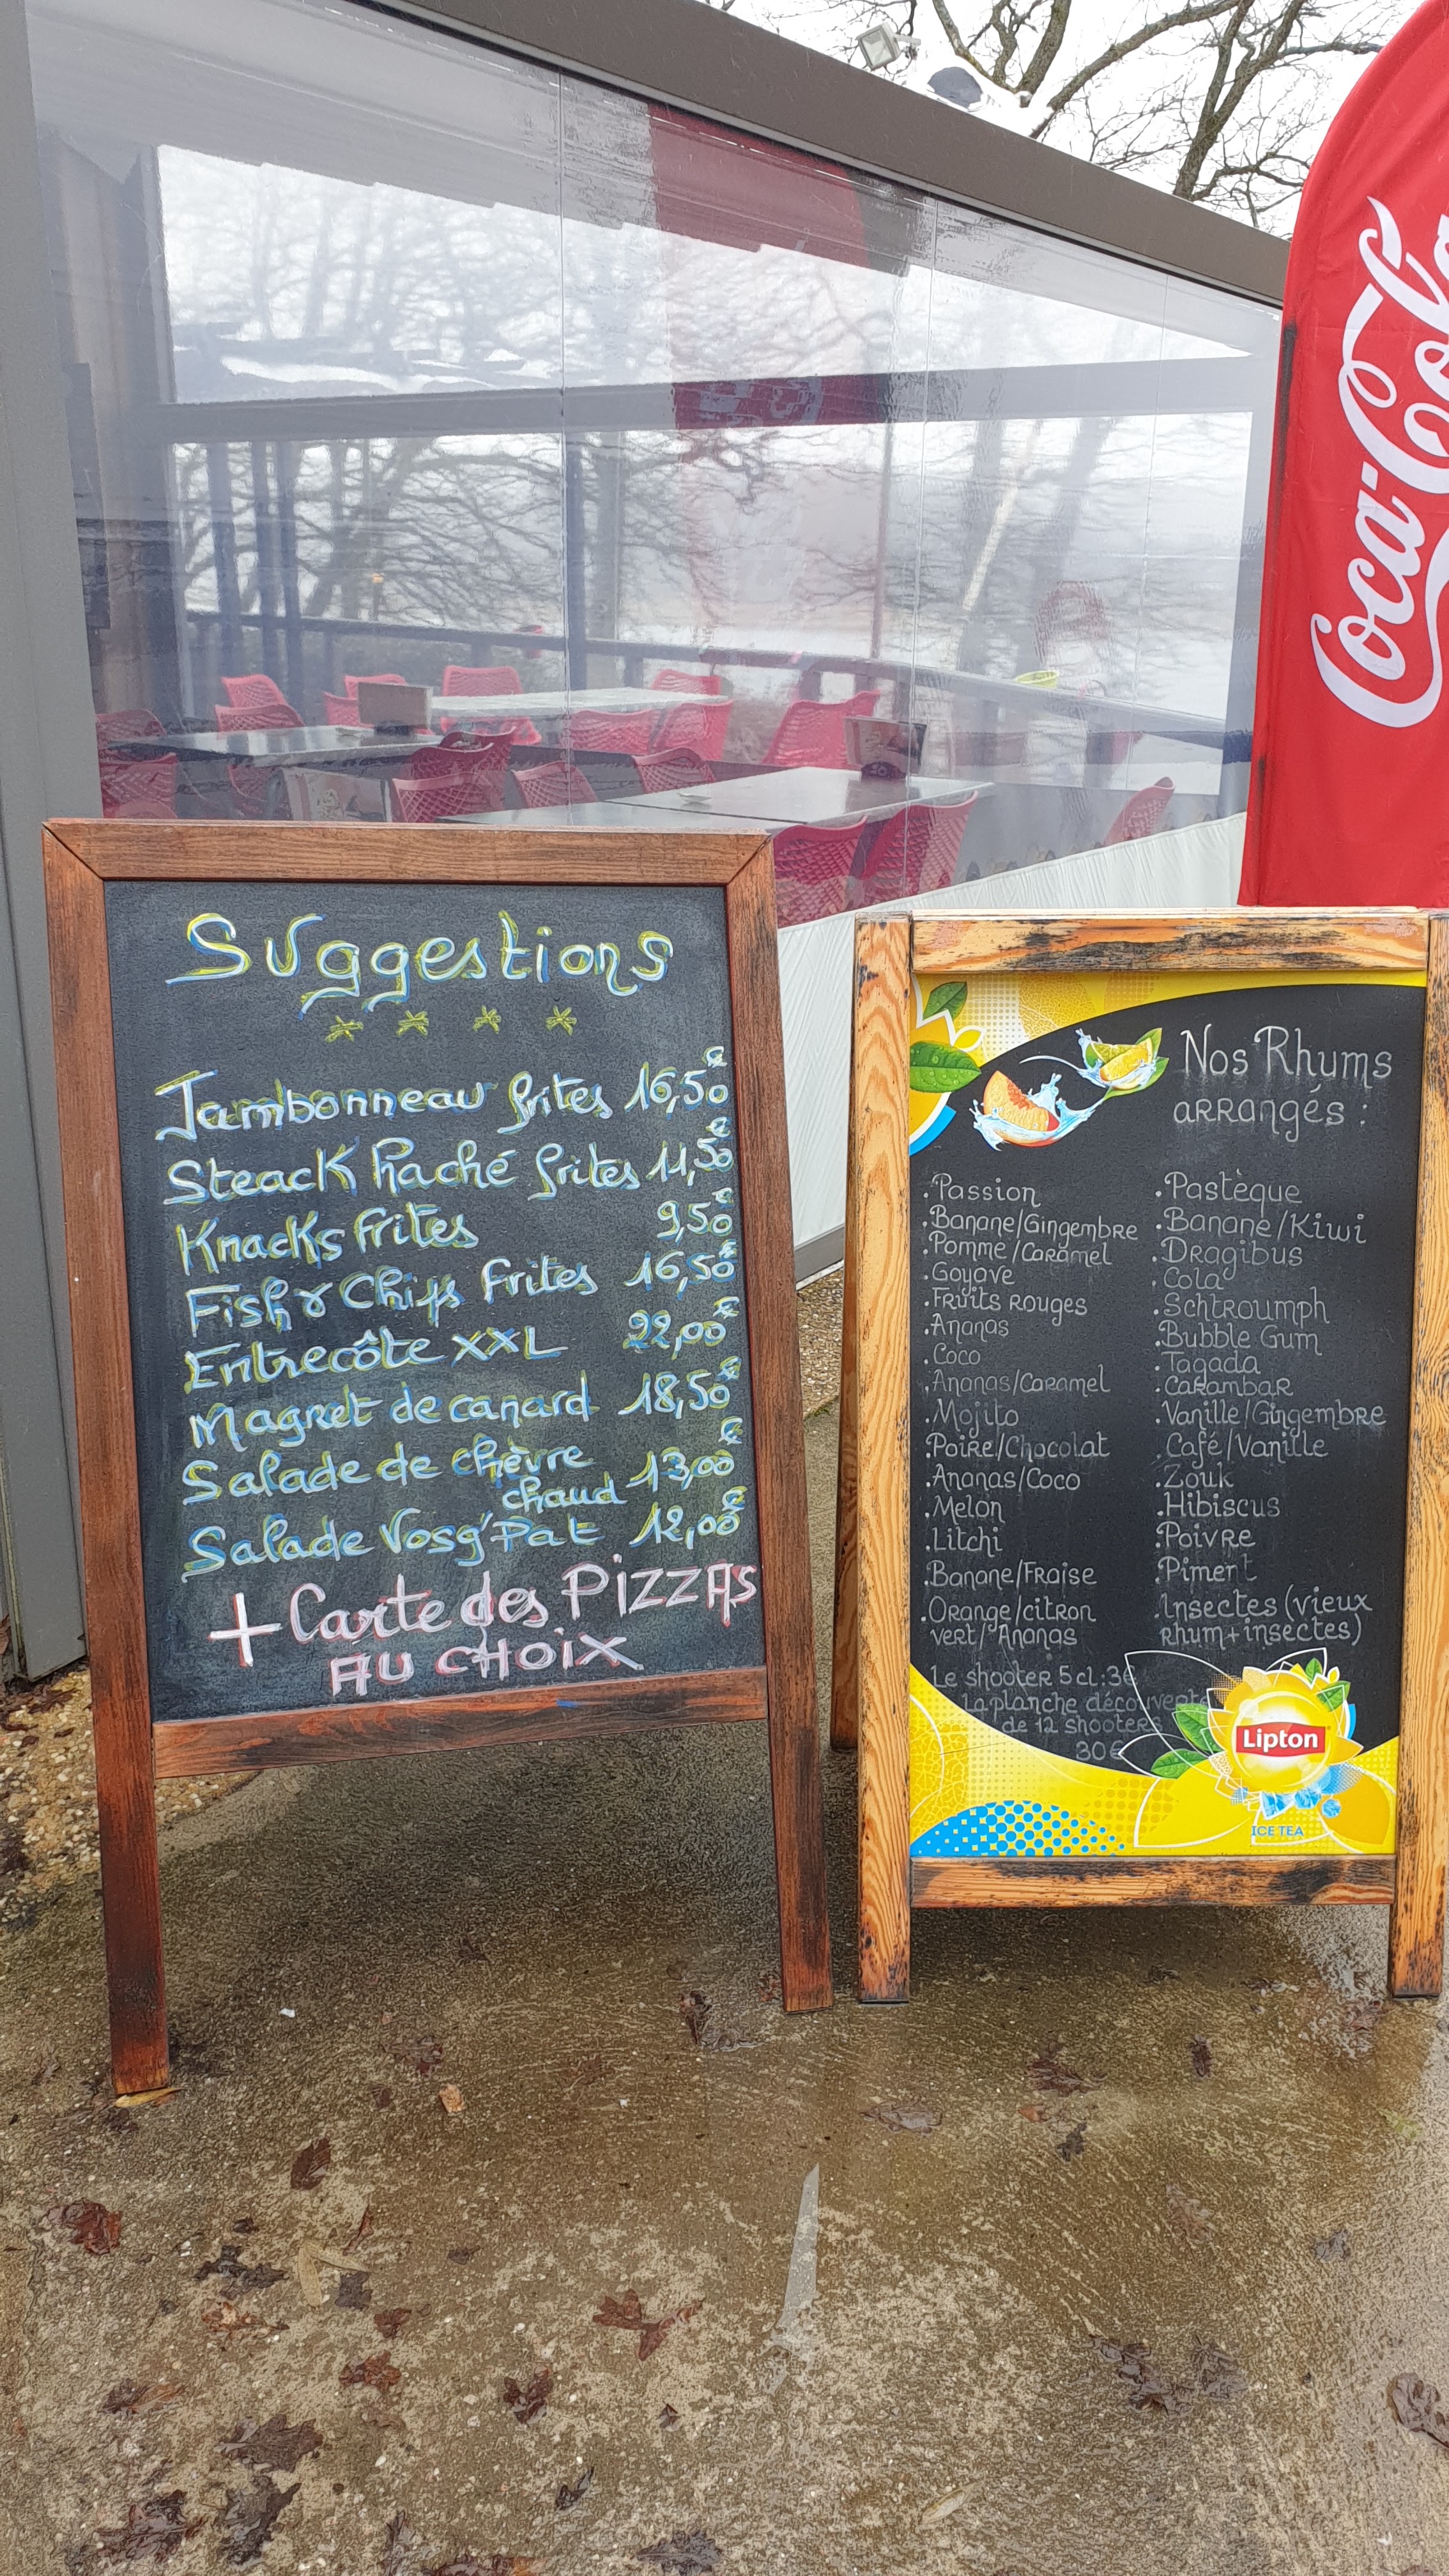 Coca-Cola
Suggestions
Jambonneau frites 16,50€
Steack haché frites 11,50€
Knacks frites 9,50€
Fish & Chips frites 16,50€
Entrecôte XXL 22,00€
Magret de canard 18,50€
Salade de chèvre
chaud 13,00€
Salade Vosg'Pat 12,00€
+ Carte des PIZZAS
AU CHOIX
Nos Rhums
arrangés :
.Passion
.Banane/Gingembre
.Pomme/Caramel
.Goyave
.Fruits rouges
.Ananas
.Coco
.Ananas/Caramel
.Mojito
.Poire/Chocolat
.Ananas/Coco
.Melon
.Litchi
.Banane/Fraise
.Orange/citron
vert/Ananas
.Pastèque
.Banane/Kiwi
.Dragibus
.Cola
.Schtroumph
.Bubble Gum
.Tagada
.Carambar
.Vanille/Gingembre
.Café/Vanille
.Zouk
.Hibiscus
.Poivre
.Piment
.Insectes (vieux
rhum+insectes)
Le shooter 5 cl : 3€
La planche découverte
de 12 shooters
30€
Lipton
ICE TEA